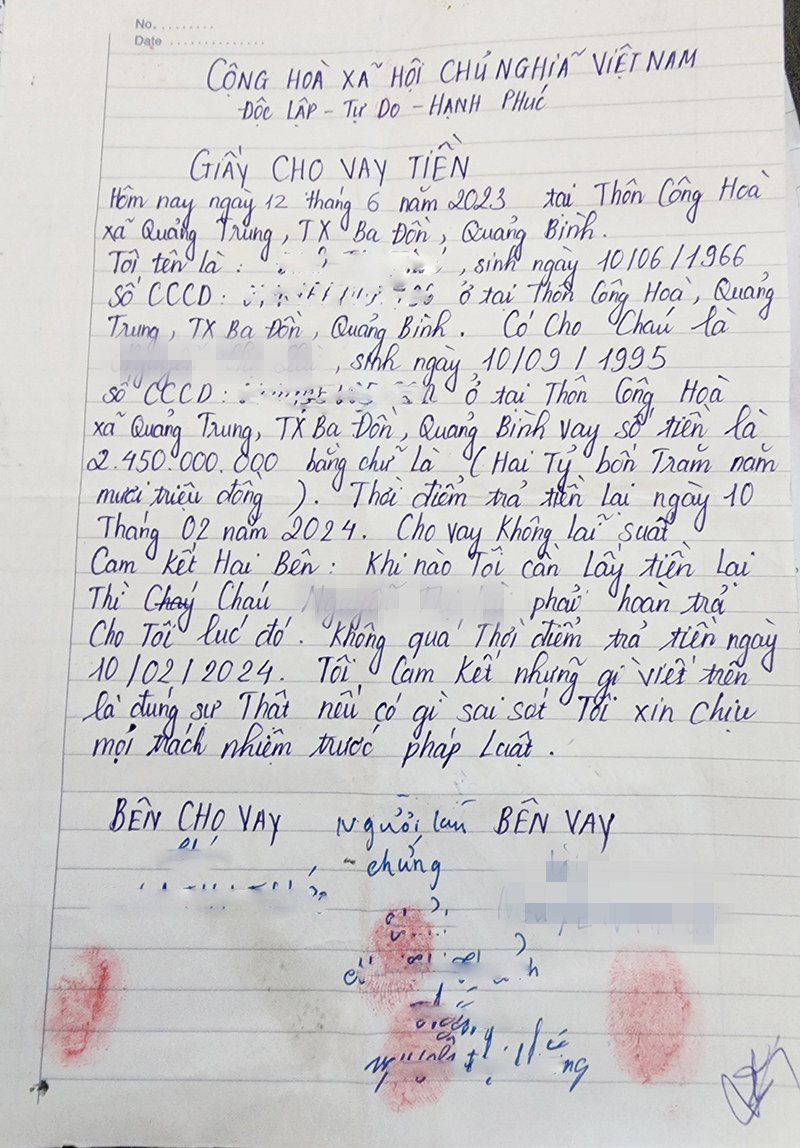 No. ........
Date ..............
CỘNG HOÀ XÃ HỘI CHỦ NGHĨA VIỆT NAM
ĐỘC LẬP - TỰ DO - HẠNH PHÚC
GIẤY CHO VAY TIỀN
Hôm nay ngày 12 tháng 6 năm 2023 tại Thôn Công Hoà
xã Quảng Trung, TX Ba Đồn, Quảng Bình.
Tôi tên là : , sinh ngày 10/06/1966
Số CCCD : ở tại Thôn Công Hoà, Quảng
Trung, TX Ba Đồn, Quảng Bình. Có Cho Cháu là
, sinh ngày 10/09/1995
số CCCD : ở tại Thôn Công Hoà
xã Quảng Trung, TX Ba Đồn, Quảng Bình vay số tiền là
2.450.000.000 bằng chữ là (Hai Tỷ bốn Trăm năm
mươi triệu đồng). Thời điểm trả tiền lại ngày 10
Tháng 02 năm 2024. Cho vay Không lãi suất
Cam kết Hai Bên : Khi nào Tôi cần Lấy tiền Lại
Thì Cháu phải hoàn trả
Cho Tôi lúc đó. Không quá Thời điểm trả tiền ngày
10/02/2024. Tôi Cam Kết những gì viết trên
là đúng sự Thật nếu có gì sai sót Tôi xin Chịu
mọi trách nhiệm trước pháp Luật.
BÊN CHO VAY Người làm BÊN VAY
chứng